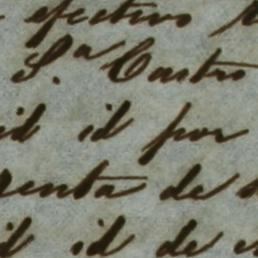 efectivo
S.ª Castro
id id por
renta de
id id de